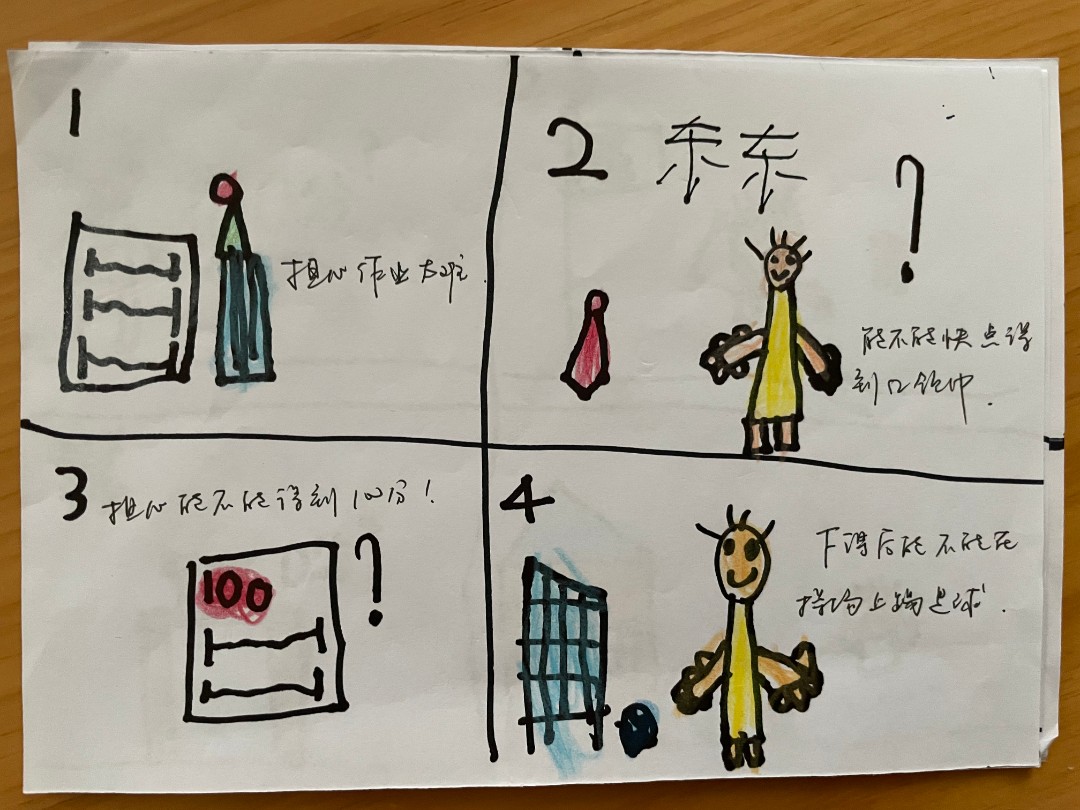 1
担心作业太难.
2 东东
?
能不能快点得
到
3 担心能不能得到100分!
100
?
4
下课后能不能在
操场上踢足球.